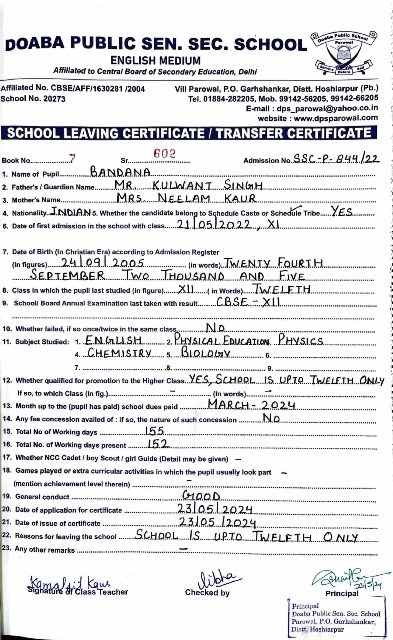 DOABA PUBLIC SEN. SEC. SCHOOL
ENGLISH MEDIUM
Affiliated to Central Board of Secondary Education, Delhi
Affiliated No. CBSE/AFF/1630281 /2004
School No. 20273
Vill Parowal, P.O. Garhshankar, Distt. Hoshiarpur (Pb.)
Tel. 01884-282205, Mob. 99142-56205, 99142-66205
E-mail : dps_parowal@yahoo.co.in
website : www.dpsparowal.com
SCHOOL LEAVING CERTIFICATE / TRANSFER CERTIFICATE
Book No. 7 Sr. 602 Admission No. SSC-P-844/22
1. Name of Pupil BANDANA
2. Father's / Guardian Name MR. KULWANT SINGH
3. Mother's Name MRS. NEELAM KAUR
4. Nationality INDIAN 5. Whether the candidate belong to Schedule Caste or Schedule Tribe YES
6. Date of first admission in the school with class 21/05/2022, XI
7. Date of Birth (In Christian Era) according to Admission Register
(in figures) 24/09/2005 (in words) TWENTY FOURTH
SEPTEMBER TWO THOUSAND AND FIVE
8. Class in which the pupil last studied (in figure) XII (in Words) TWELFTH
9. School/ Board Annual Examination last taken with result CBSE - XII
10. Whether failed, if so once/twice in the same class NO
11. Subject Studied: 1. ENGLISH 2. PHYSICAL EDUCATION 3. PHYSICS
4. CHEMISTRY 5. BIOLOGY 6.
7. 8. 9.
12. Whether qualified for promotion to the Higher Class. YES, SCHOOL IS UPTO TWELFTH ONLY
If so, to which Class (in fig.) – (In words) –
13. Month up to the (pupil has paid) school dues paid MARCH - 2024
14. Any fee concession availed of : if so, the nature of such concession NO
15. Total No of Working days 155
16. Total No. of Working days present 152
17. Whether NCC Cadet / boy Scout / girl Guide (Detail may be given) –
18. Games played or extra curricular activities in which the pupil usually look part –
(mention achievement level therein) –
19. General conduct GOOD
20. Date of application for certificate 23/05/2024
21. Date of issue of certificate 23/05/2024
22. Reasons for leaving the school SCHOOL IS UPTO TWELFTH ONLY
23. Any other remarks –
Kamaljit Kaur
Signature of Class Teacher
Checked by
Principal
Principal
Doaba Public Sen. Sec. School
Parowal, P.O. Garhshankar,
Distt. Hoshiarpur